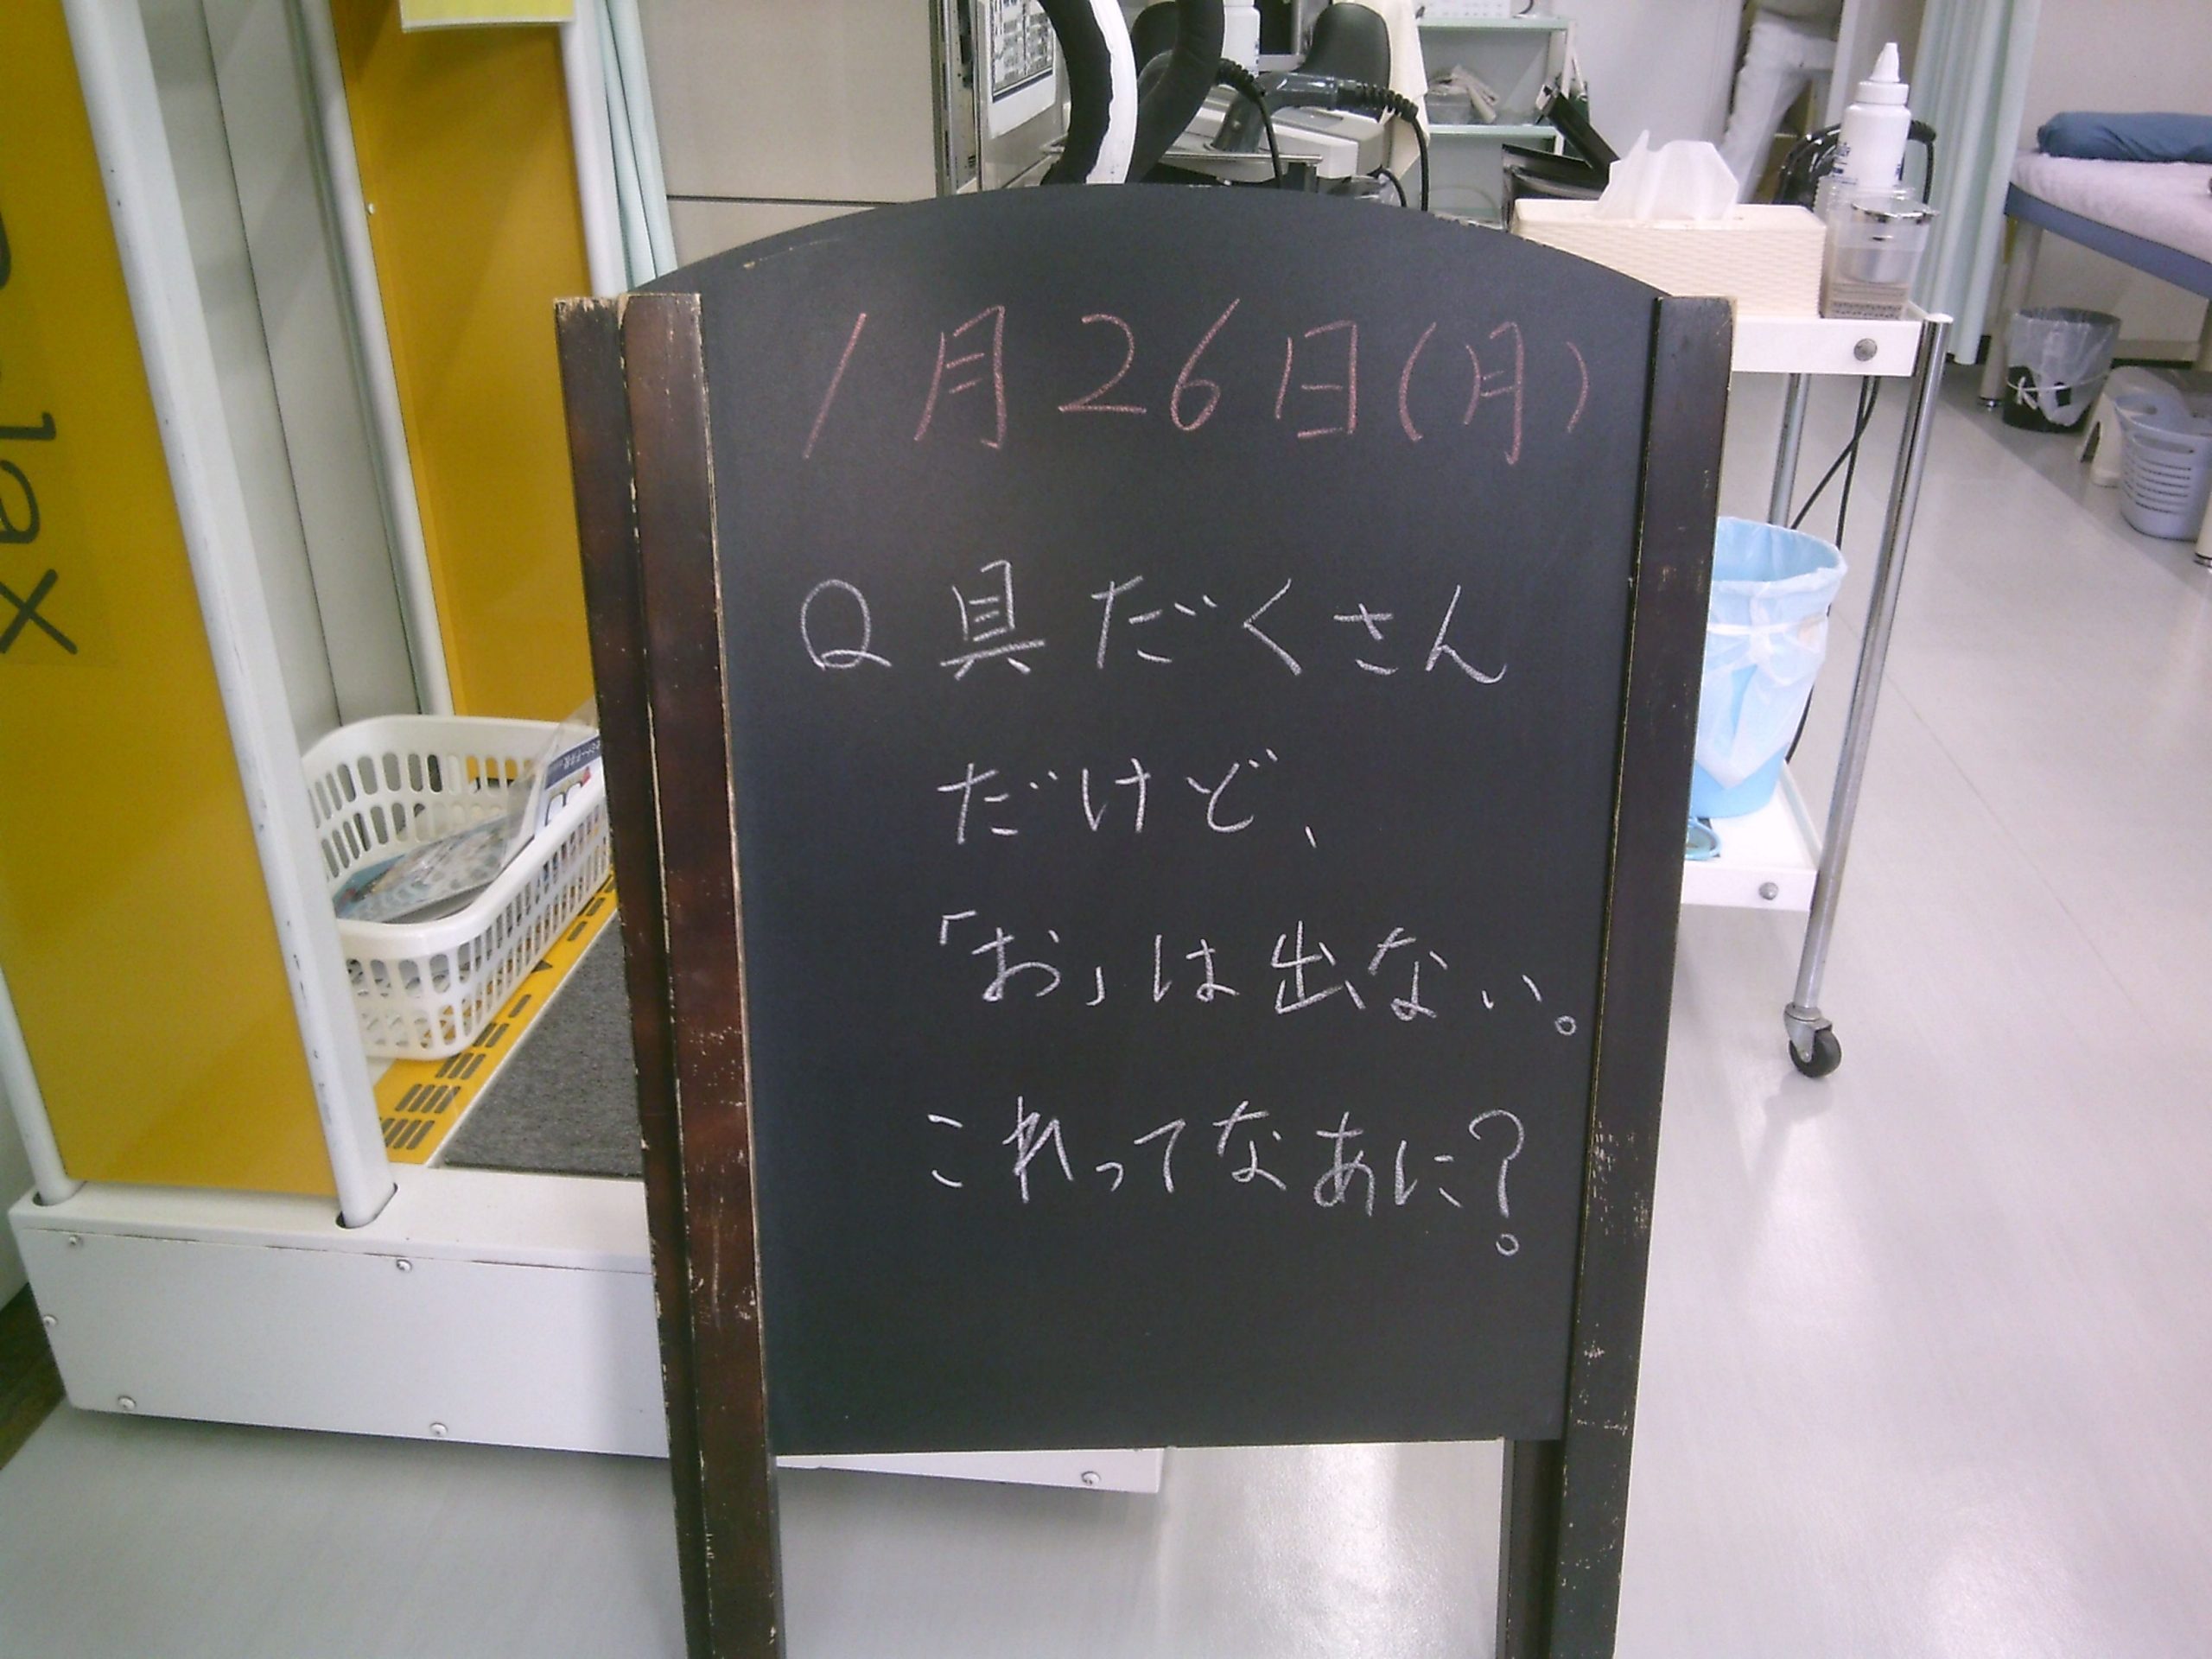 1月26日(月)
Q具だくさん
だけど、
「お」は出ない。
これってなあに?
lax